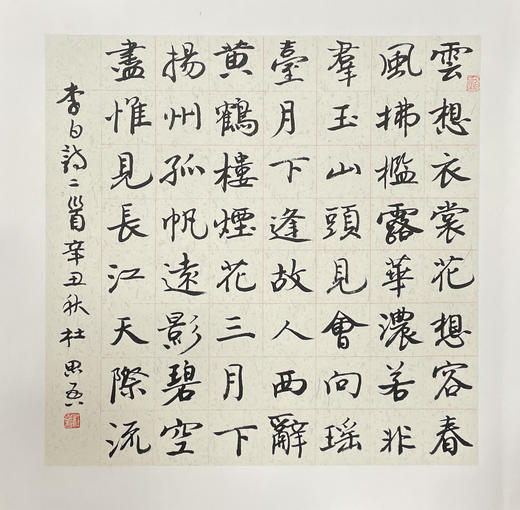 雲想衣裳花想容春
風拂檻露華濃若非
羣玉山頭見會向瑶
臺月下逢故人西辭
黄鶴樓煙花三月下
揚州孤帆遠影碧空
盡惟見長江天際流
李白詩二首辛丑秋杜思